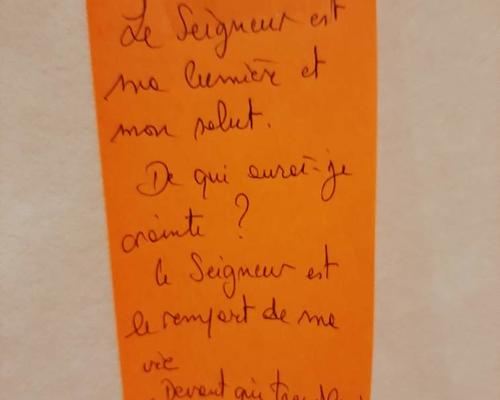 Le Seigneur est
ma lumière et
mon salut.
De qui aurai-je
crainte ?
le Seigneur est
le rempart de ma
vie
Devant qui